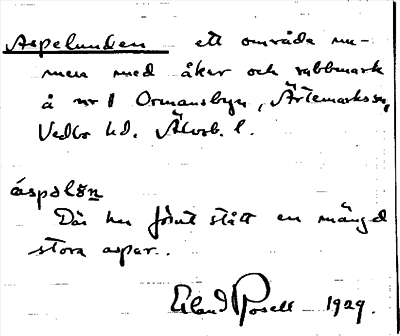 Aspelunden ett område nu-
mera med åker och rabbmark
å nr 1 Ormansbyn, Ärtemarks sn,
Vedbo hd. Älvsb. l.
áspəlɞn
Där har förut stått en mängd
stora aspar.
Erland Rosell 1929.